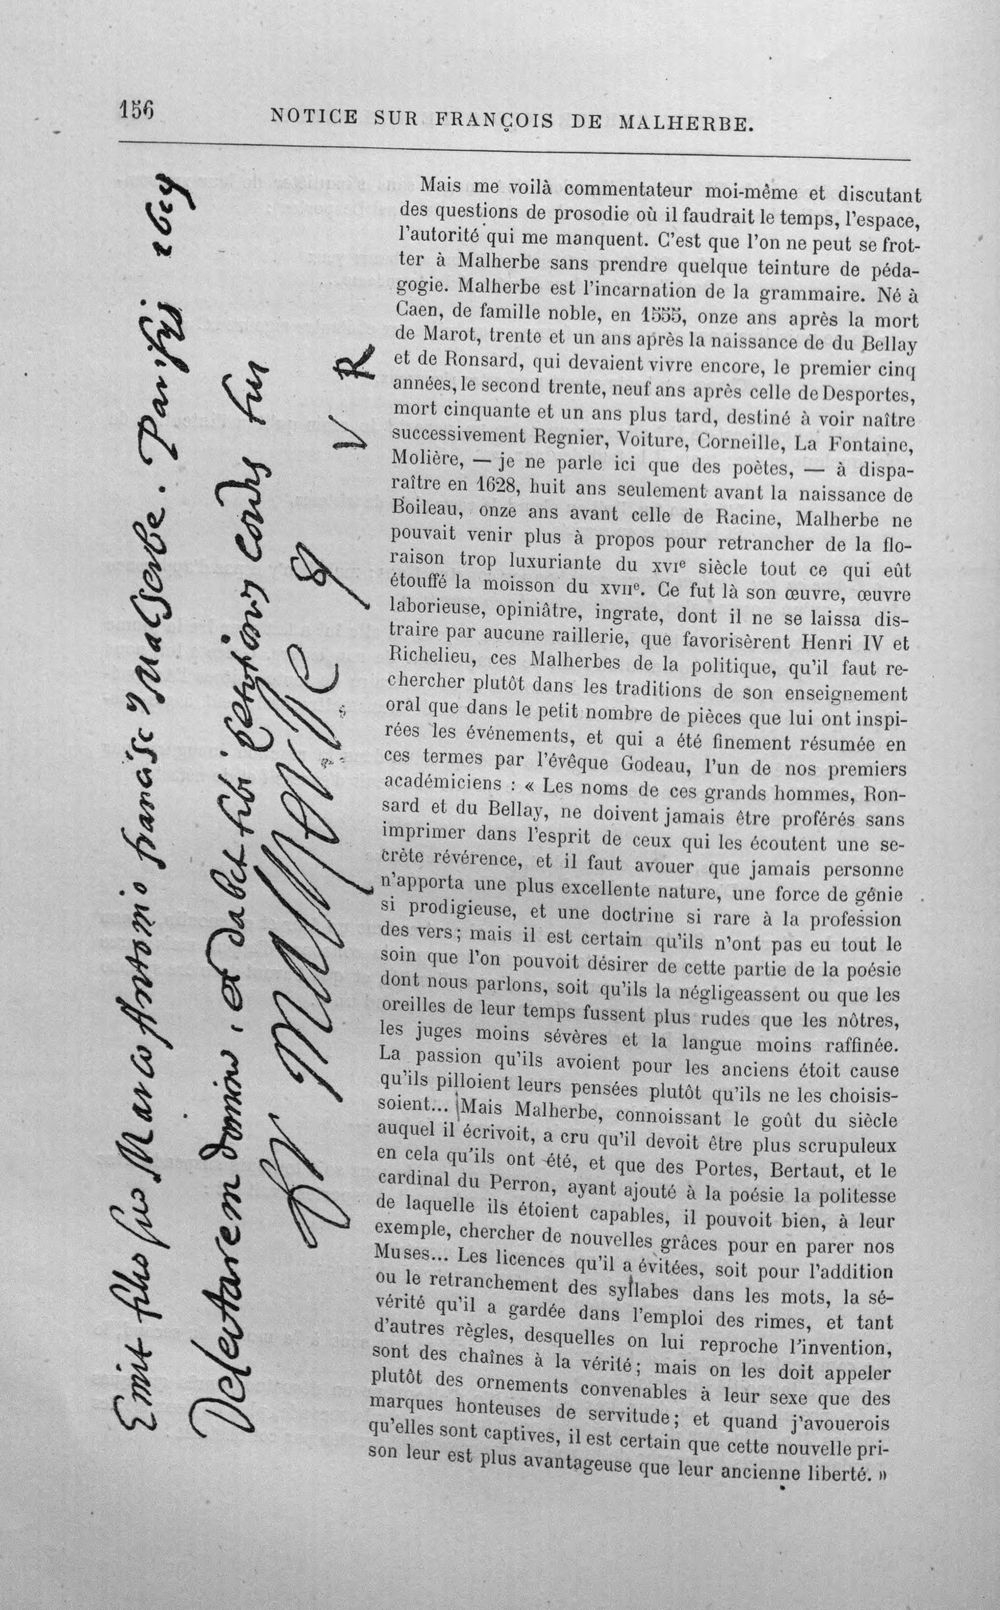 156
NOTICE SUR FRANÇOIS DE MALHERBE.
Emit filio suo Marco Antonio francisc' Malherbe. Parisijs
Delectarem domino, et dabit tibi petitiones cordis tui
fr Malherbe
V R
Mais me voilà commentateur moi-même et discutant
des questions de prosodie où il faudrait le temps, l'espace,
l'autorité qui me manquent. C'est que l'on ne peut se frot-
ter à Malherbe sans prendre quelque teinture de péda-
gogie. Malherbe est l'incarnation de la grammaire. Né à
Caen, de famille noble, en 1555, onze ans après la mort
de Marot, trente et un ans après la naissance de du Bellay
et de Ronsard, qui devaient vivre encore, le premier cinq
années, le second trente, neuf ans après celle de Desportes,
mort cinquante et un ans plus tard, destiné à voir naître
successivement Regnier, Voiture, Corneille, La Fontaine,
Molière, — je ne parle ici que des poètes, — à dispa-
raître en 1628, huit ans seulement avant la naissance de
Boileau, onze ans avant celle de Racine, Malherbe ne
pouvait venir plus à propos pour retrancher de la flo-
raison trop luxuriante du XVIe siècle tout ce qui eût
étouffé la moisson du XVIIe. Ce fut là son œuvre, œuvre
laborieuse, opiniâtre, ingrate, dont il ne se laissa dis-
traire par aucune raillerie, que favorisèrent Henri IV et
Richelieu, ces Malherbes de la politique, qu'il faut re-
chercher plutôt dans les traditions de son enseignement
oral que dans le petit nombre de pièces que lui ont inspi-
rées les événements, et qui a été finement résumée en
ces termes par l'évêque Godeau, l'un de nos premiers
académiciens : « Les noms de ces grands hommes, Ron-
sard et du Bellay, ne doivent jamais être proférés sans
imprimer dans l'esprit de ceux qui les écoutent une se-
crète révérence, et il faut avouer que jamais personne
n'apporta une plus excellente nature, une force de génie
si prodigieuse, et une doctrine si rare à la profession
des vers; mais il est certain qu'ils n'ont pas eu tout le
soin que l'on pouvoit désirer de cette partie de la poésie
dont nous parlons, soit qu'ils la négligeassent ou que les
oreilles de leur temps fussent plus rudes que les nôtres,
les juges moins sévères et la langue moins raffinée.
La passion qu'ils avoient pour les anciens étoit cause
qu'ils pilloient leurs pensées plutôt qu'ils ne les choisis-
soient... Mais Malherbe, connoissant le goût du siècle
auquel il écrivoit, a cru qu'il devoit être plus scrupuleux
en cela qu'ils ont été, et que des Portes, Bertaut, et le
cardinal du Perron, ayant ajouté à la poésie la politesse
de laquelle ils étoient capables, il pouvoit bien, à leur
exemple, chercher de nouvelles grâces pour en parer nos
Muses... Les licences qu'il a évitées, soit pour l'addition
ou le retranchement des syllabes dans les mots, la sé-
vérité qu'il a gardée dans l'emploi des rimes, et tant
d'autres règles, desquelles on lui reproche l'invention,
sont des chaînes à la vérité; mais on les doit appeler
plutôt des ornements convenables à leur sexe que des
marques honteuses de servitude; et quand j'avouerois
qu'elles sont captives, il est certain que cette nouvelle pri-
son leur est plus avantageuse que leur ancienne liberté. »